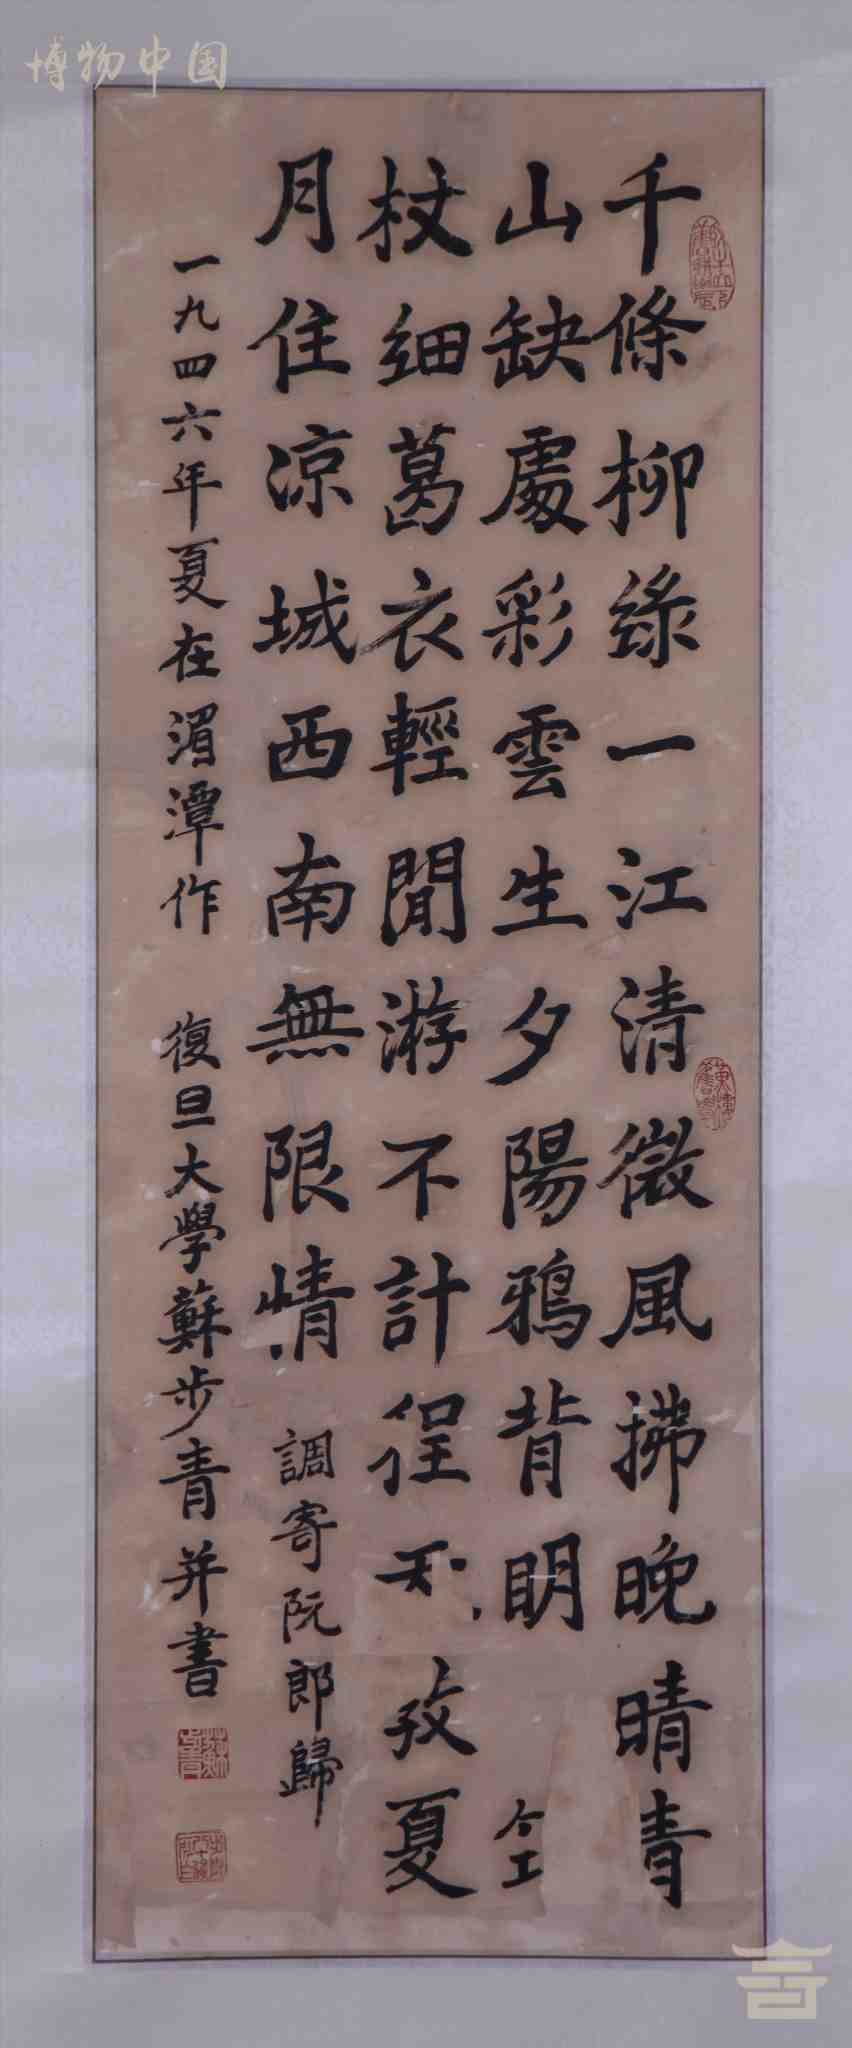 博物中国
千條柳綠一江清微風拂晚晴青
山缺處彩雲生夕陽鴉背明
杖細葛衣輕閒游不計程夏
月住涼城西南無限情
調寄阮郎歸
一九四六年夏在湄潭作 復旦大學蘇步青并書